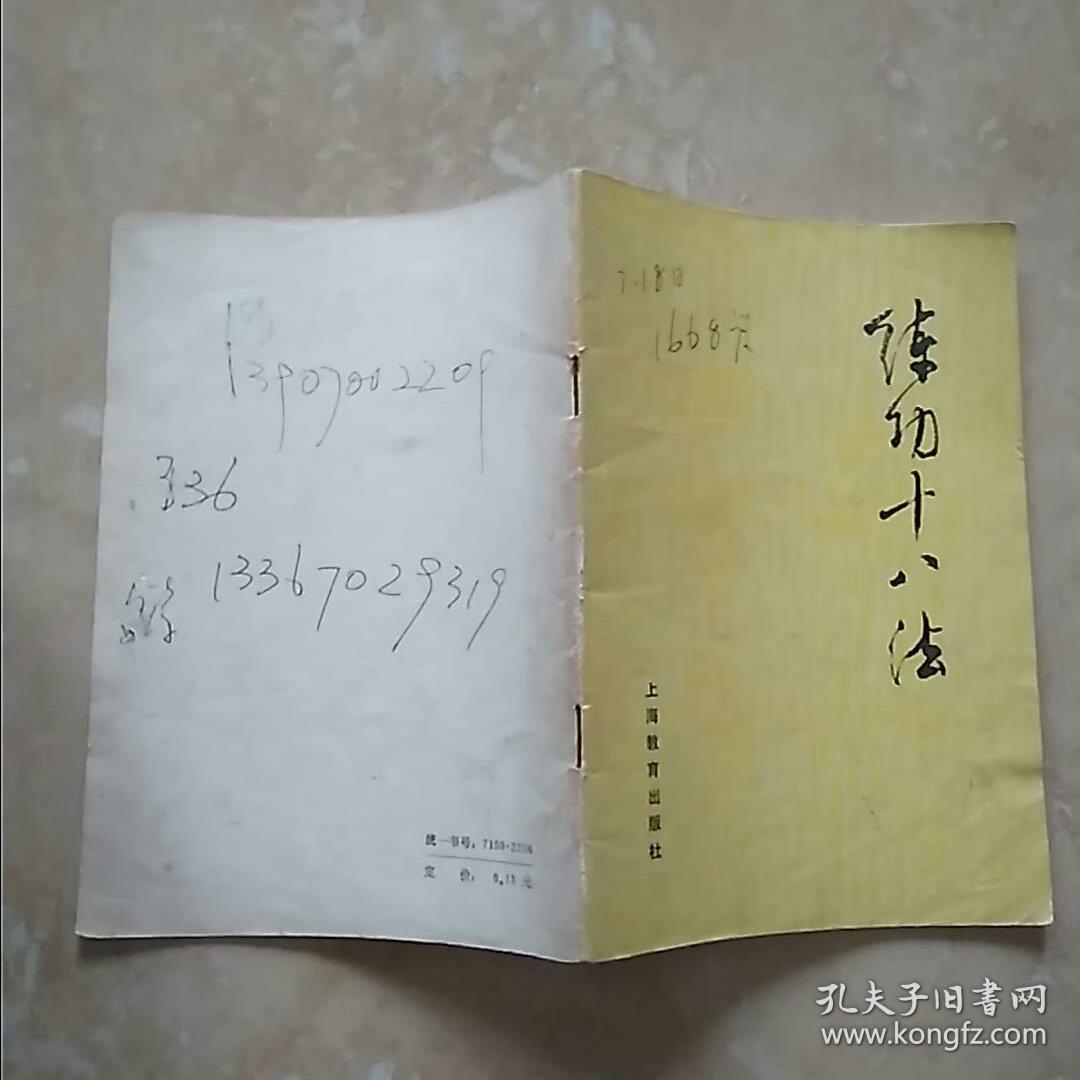 13907002209
136
13367029319
统一书号：7150·2206
定 价： 0.13 元
7.18日
1668
练功十八法
上海教育出版社
孔夫子旧書网
www.kongfz.com